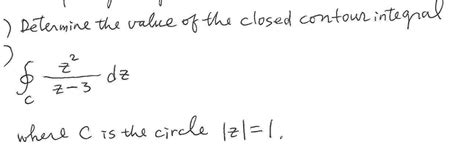 ) Determine the value of the closed contour integral
)
∮_C z²/(z-3) dz
where C is the circle |z|=1.